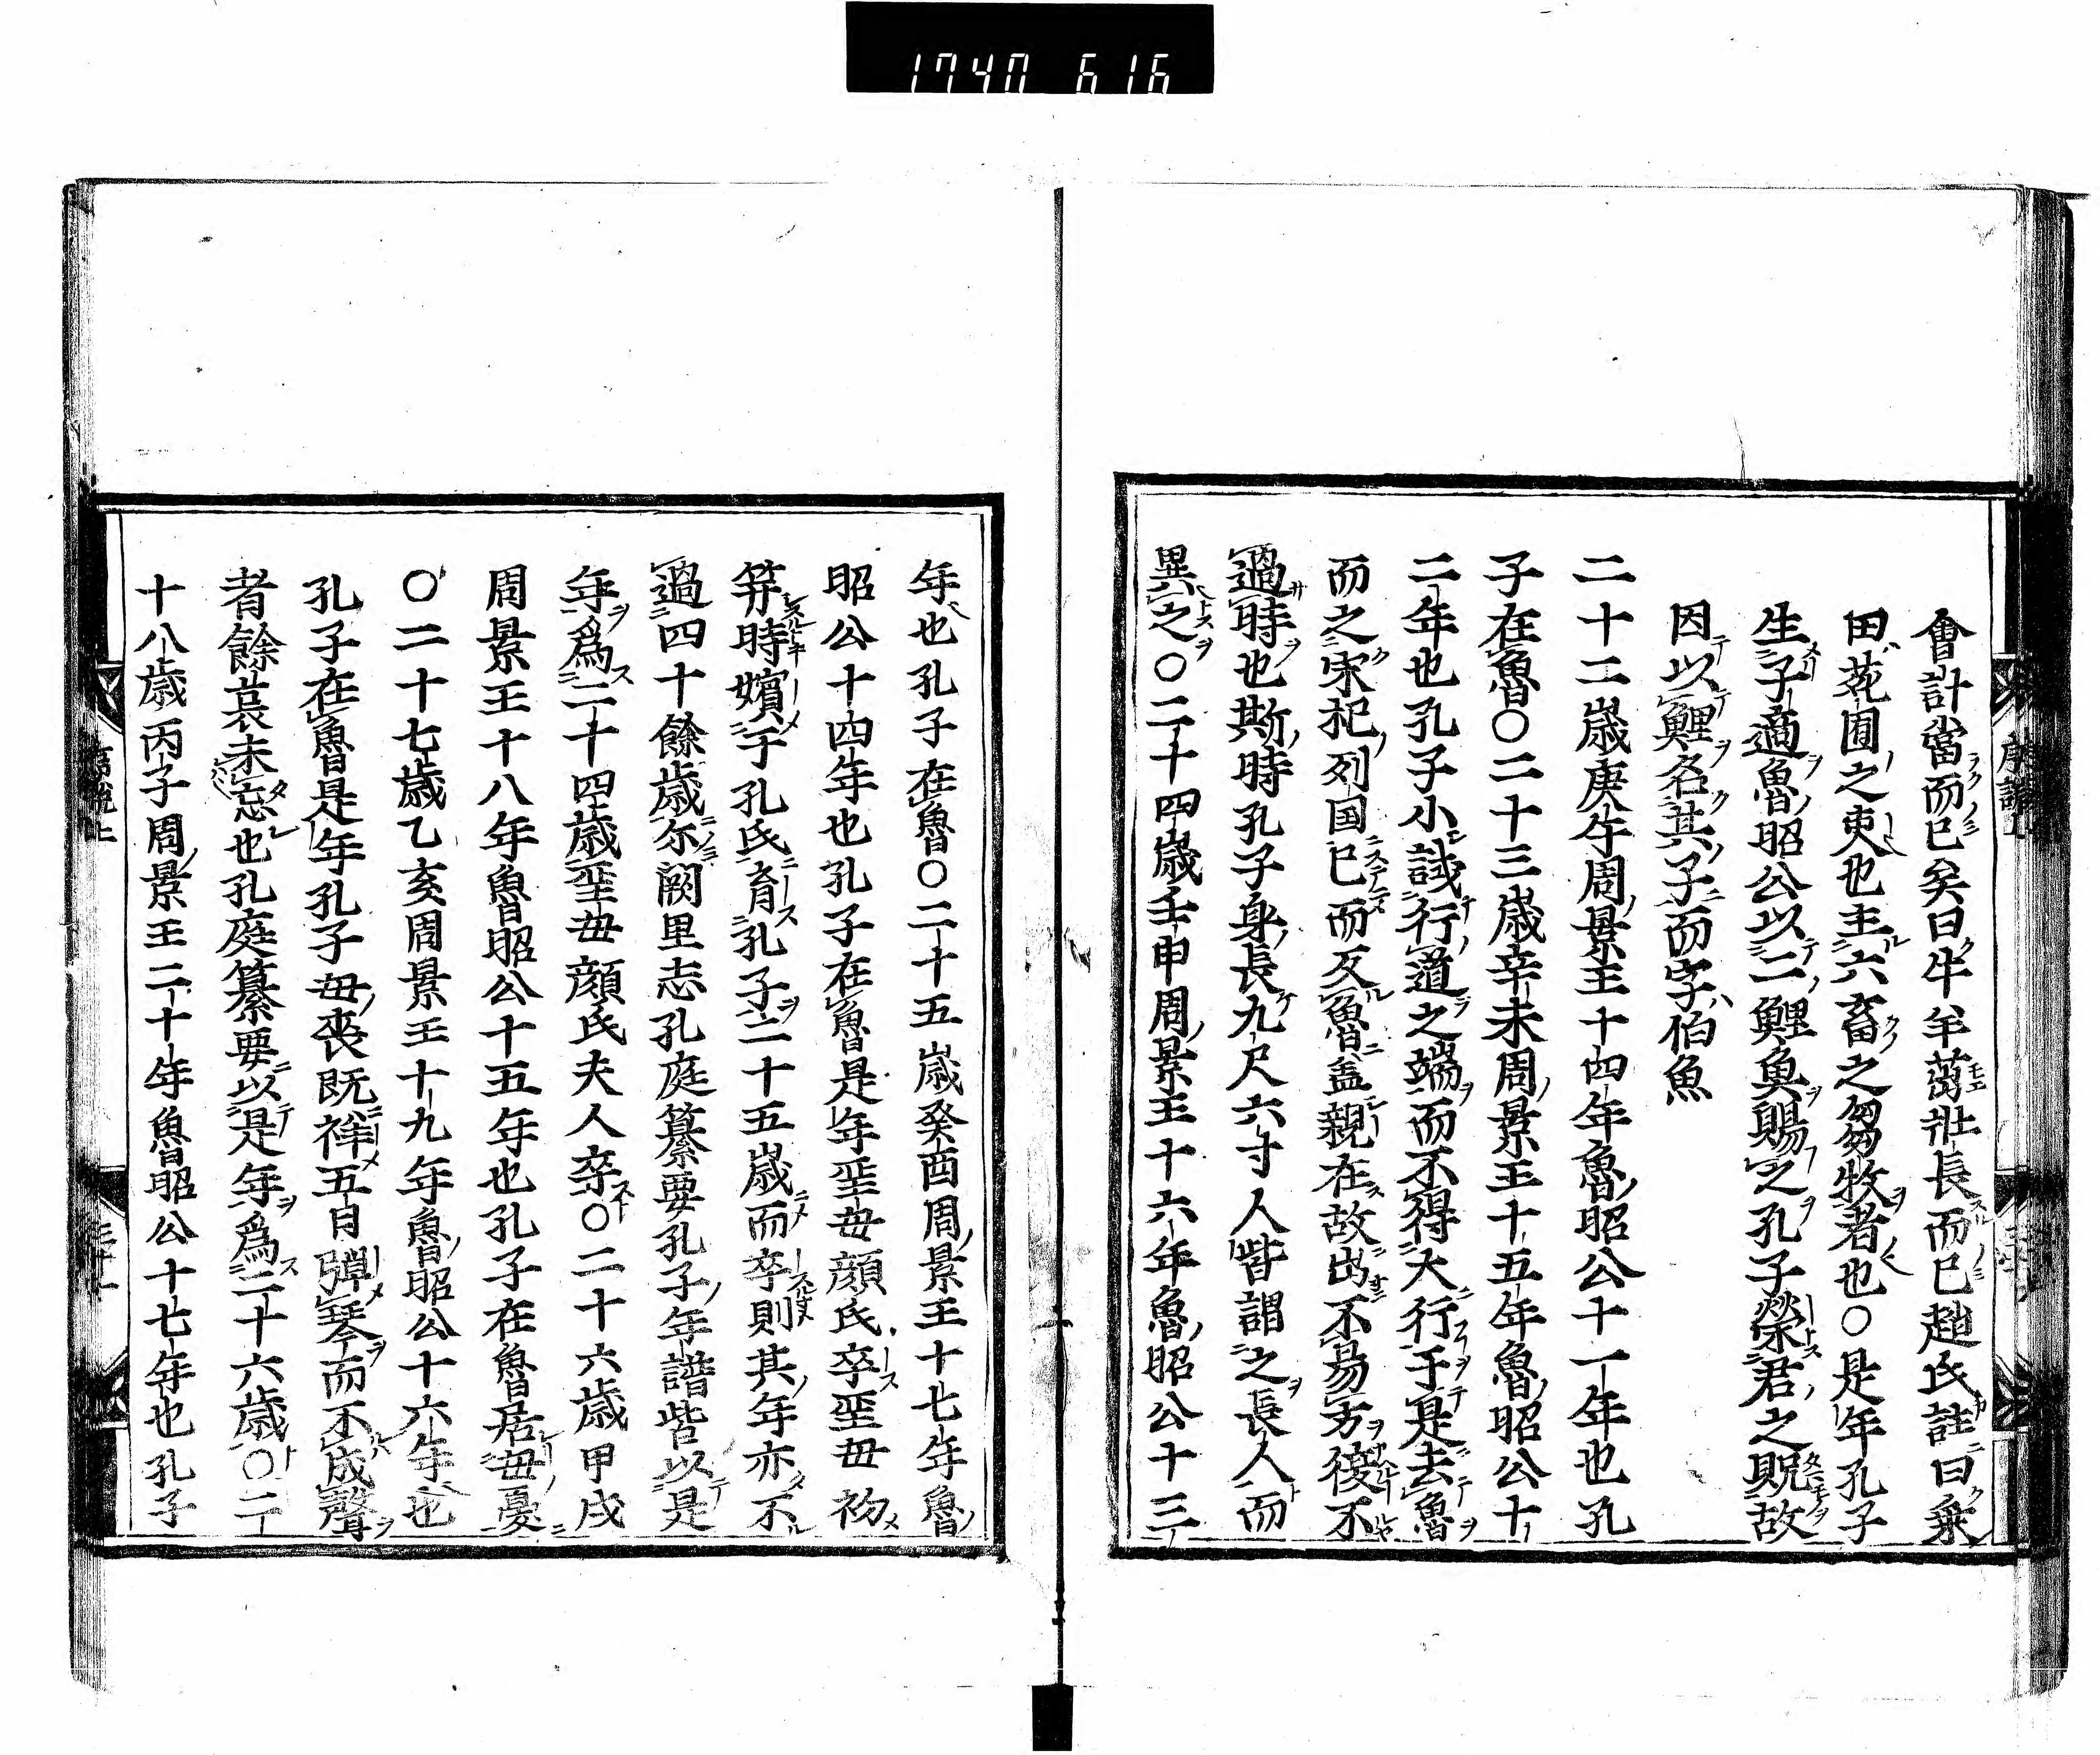 1740 616
會計當而已矣曰牛羊茁壯長而已趙氏註曰乗
田苑囿之吏也主六畜之芻牧者也〇是年孔子
生子適魯昭公以二鯉魚賜之孔子榮君之貺故
因以鯉名其子而字伯魚
二十二歳庚午周景王十四年魯昭公十一年也孔
子在魯〇二十三歳辛未周景王十五年魯昭公十
二年也孔子小試行道之端而不得大行于是去魯
而之宋杞列国已而反魯盖親在故出不易方復不
過時也斯時孔子身長九尺六寸人皆謂之長人而
異之〇二十四歳壬申周景王十六年魯昭公十三
年也孔子在魯〇二十五歳癸酉周景王十七年魯
昭公十四年也孔子在魯是年聖毋顔氏卒聖毋初
笄時嬪于孔氏育孔子二十五歳而卒則其年亦不
過四十餘歳尓闕里志孔庭纂要孔子年譜皆以是
年爲二十四歳聖毋顔氏夫人卒〇二十六歳甲戌
周景王十八年魯昭公十五年也孔子在魯居毋憂
〇二十七歳乙亥周景王十九年魯昭公十六年也
孔子在魯是年孔子毋喪既祥五日彈琴而不成聲
者餘哀未忘也孔庭纂要以是年爲二十六歳〇二
十八歳丙子周景王二十年魯昭公十七年也孔子